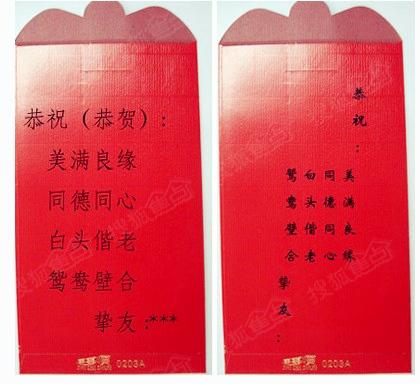 恭祝（恭贺）：
美满良缘
同德同心
白头偕老
鸳鸯壁合
挚友：***
0203A
恭祝：
美满良缘
同德同心
白头偕老
鸳鸯壁合
挚友：
0203A
搜狐焦点
搜狐焦点